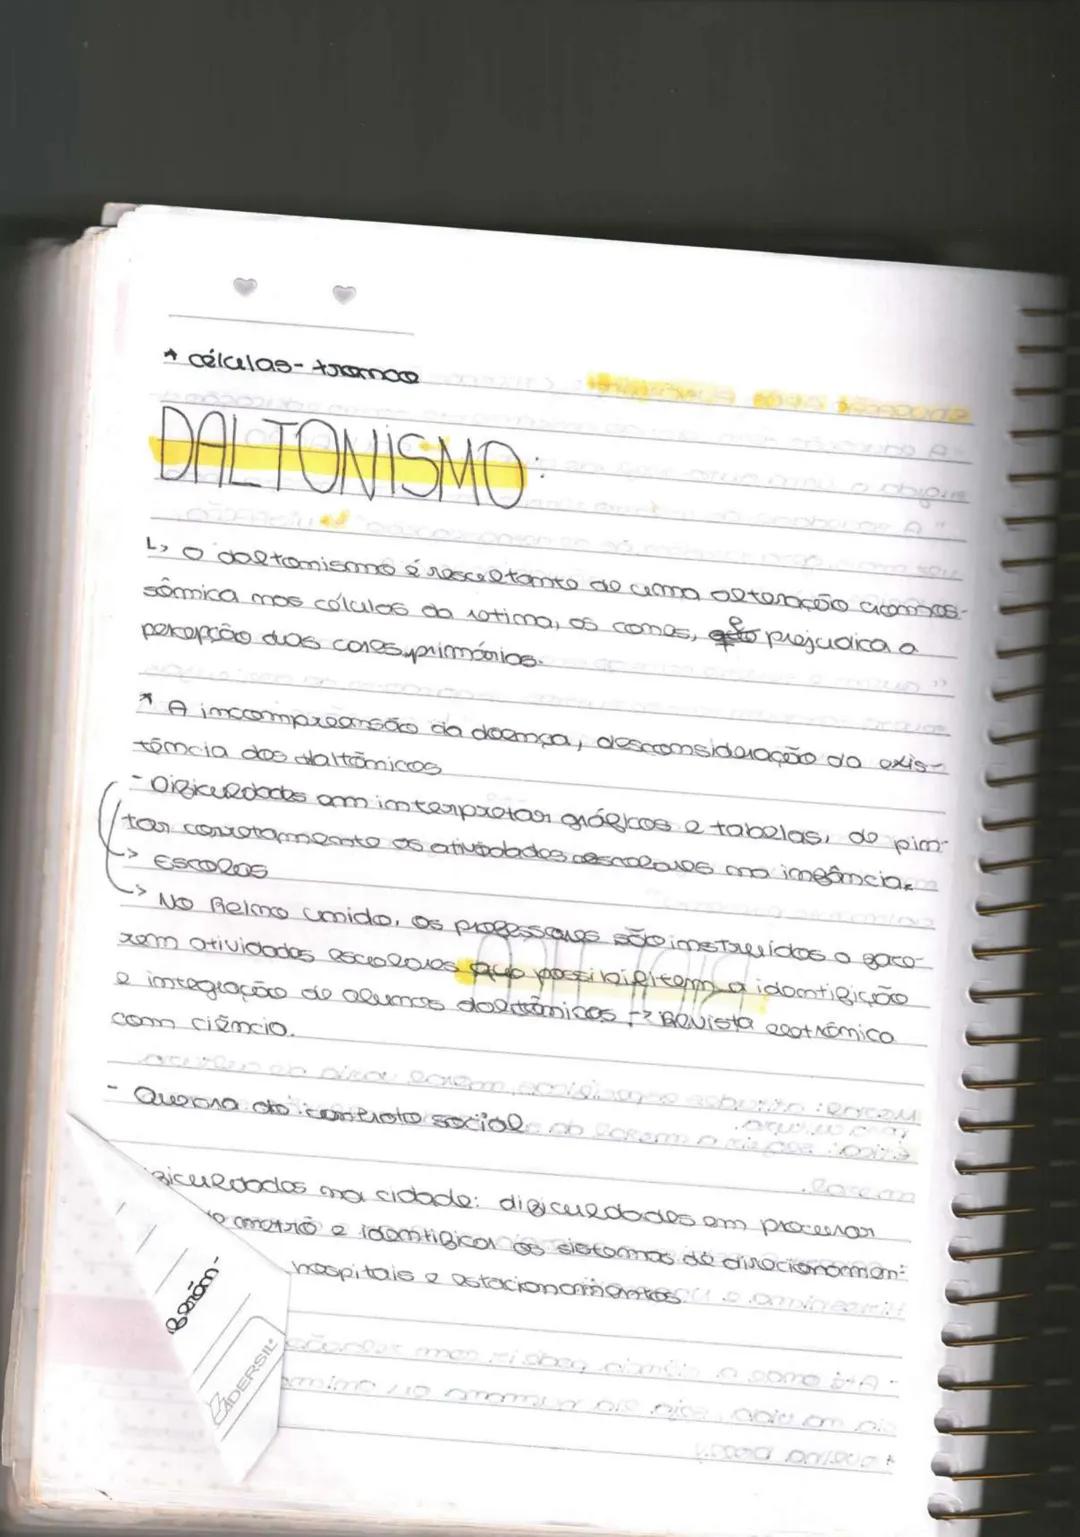 * células-tronco
DALTONISMO:
↳ O daltonismo é resultante de uma alteração cromos-
sômica nas células da retina, os cones, e prejudica a
percepção das cores primárias.
* A incompreensão da doença, desconsideração da exis-
tência dos daltônicos
- Dificuldades em interpretar gráficos e tabelas, de pin-
tar corretamente as atividades escolares na infância.
-> Escolas
-> No Reino unido, os professores são instruídos a faze-
rem atividades escolares que possibilitem a identificação
e integração de alunos daltônicos -> Revista eletrônica
com ciência.
- Quebra do controle social
ficuldades na cidade: dificuldades em processar
metrô e identificar os sistemas de direcionamen-
hospitais e estacionamentos.
CADERSIL